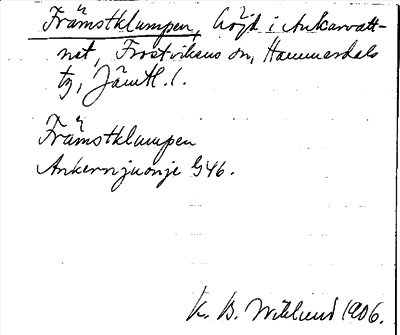 Främstklumpen, höjd i Ankarvatt-
net, Frostvikens sn, Hammerdals
tg, Jämtl. l.
Främstklumpen
Ankernjuonje G46.
K. B. Wiklund 1906.